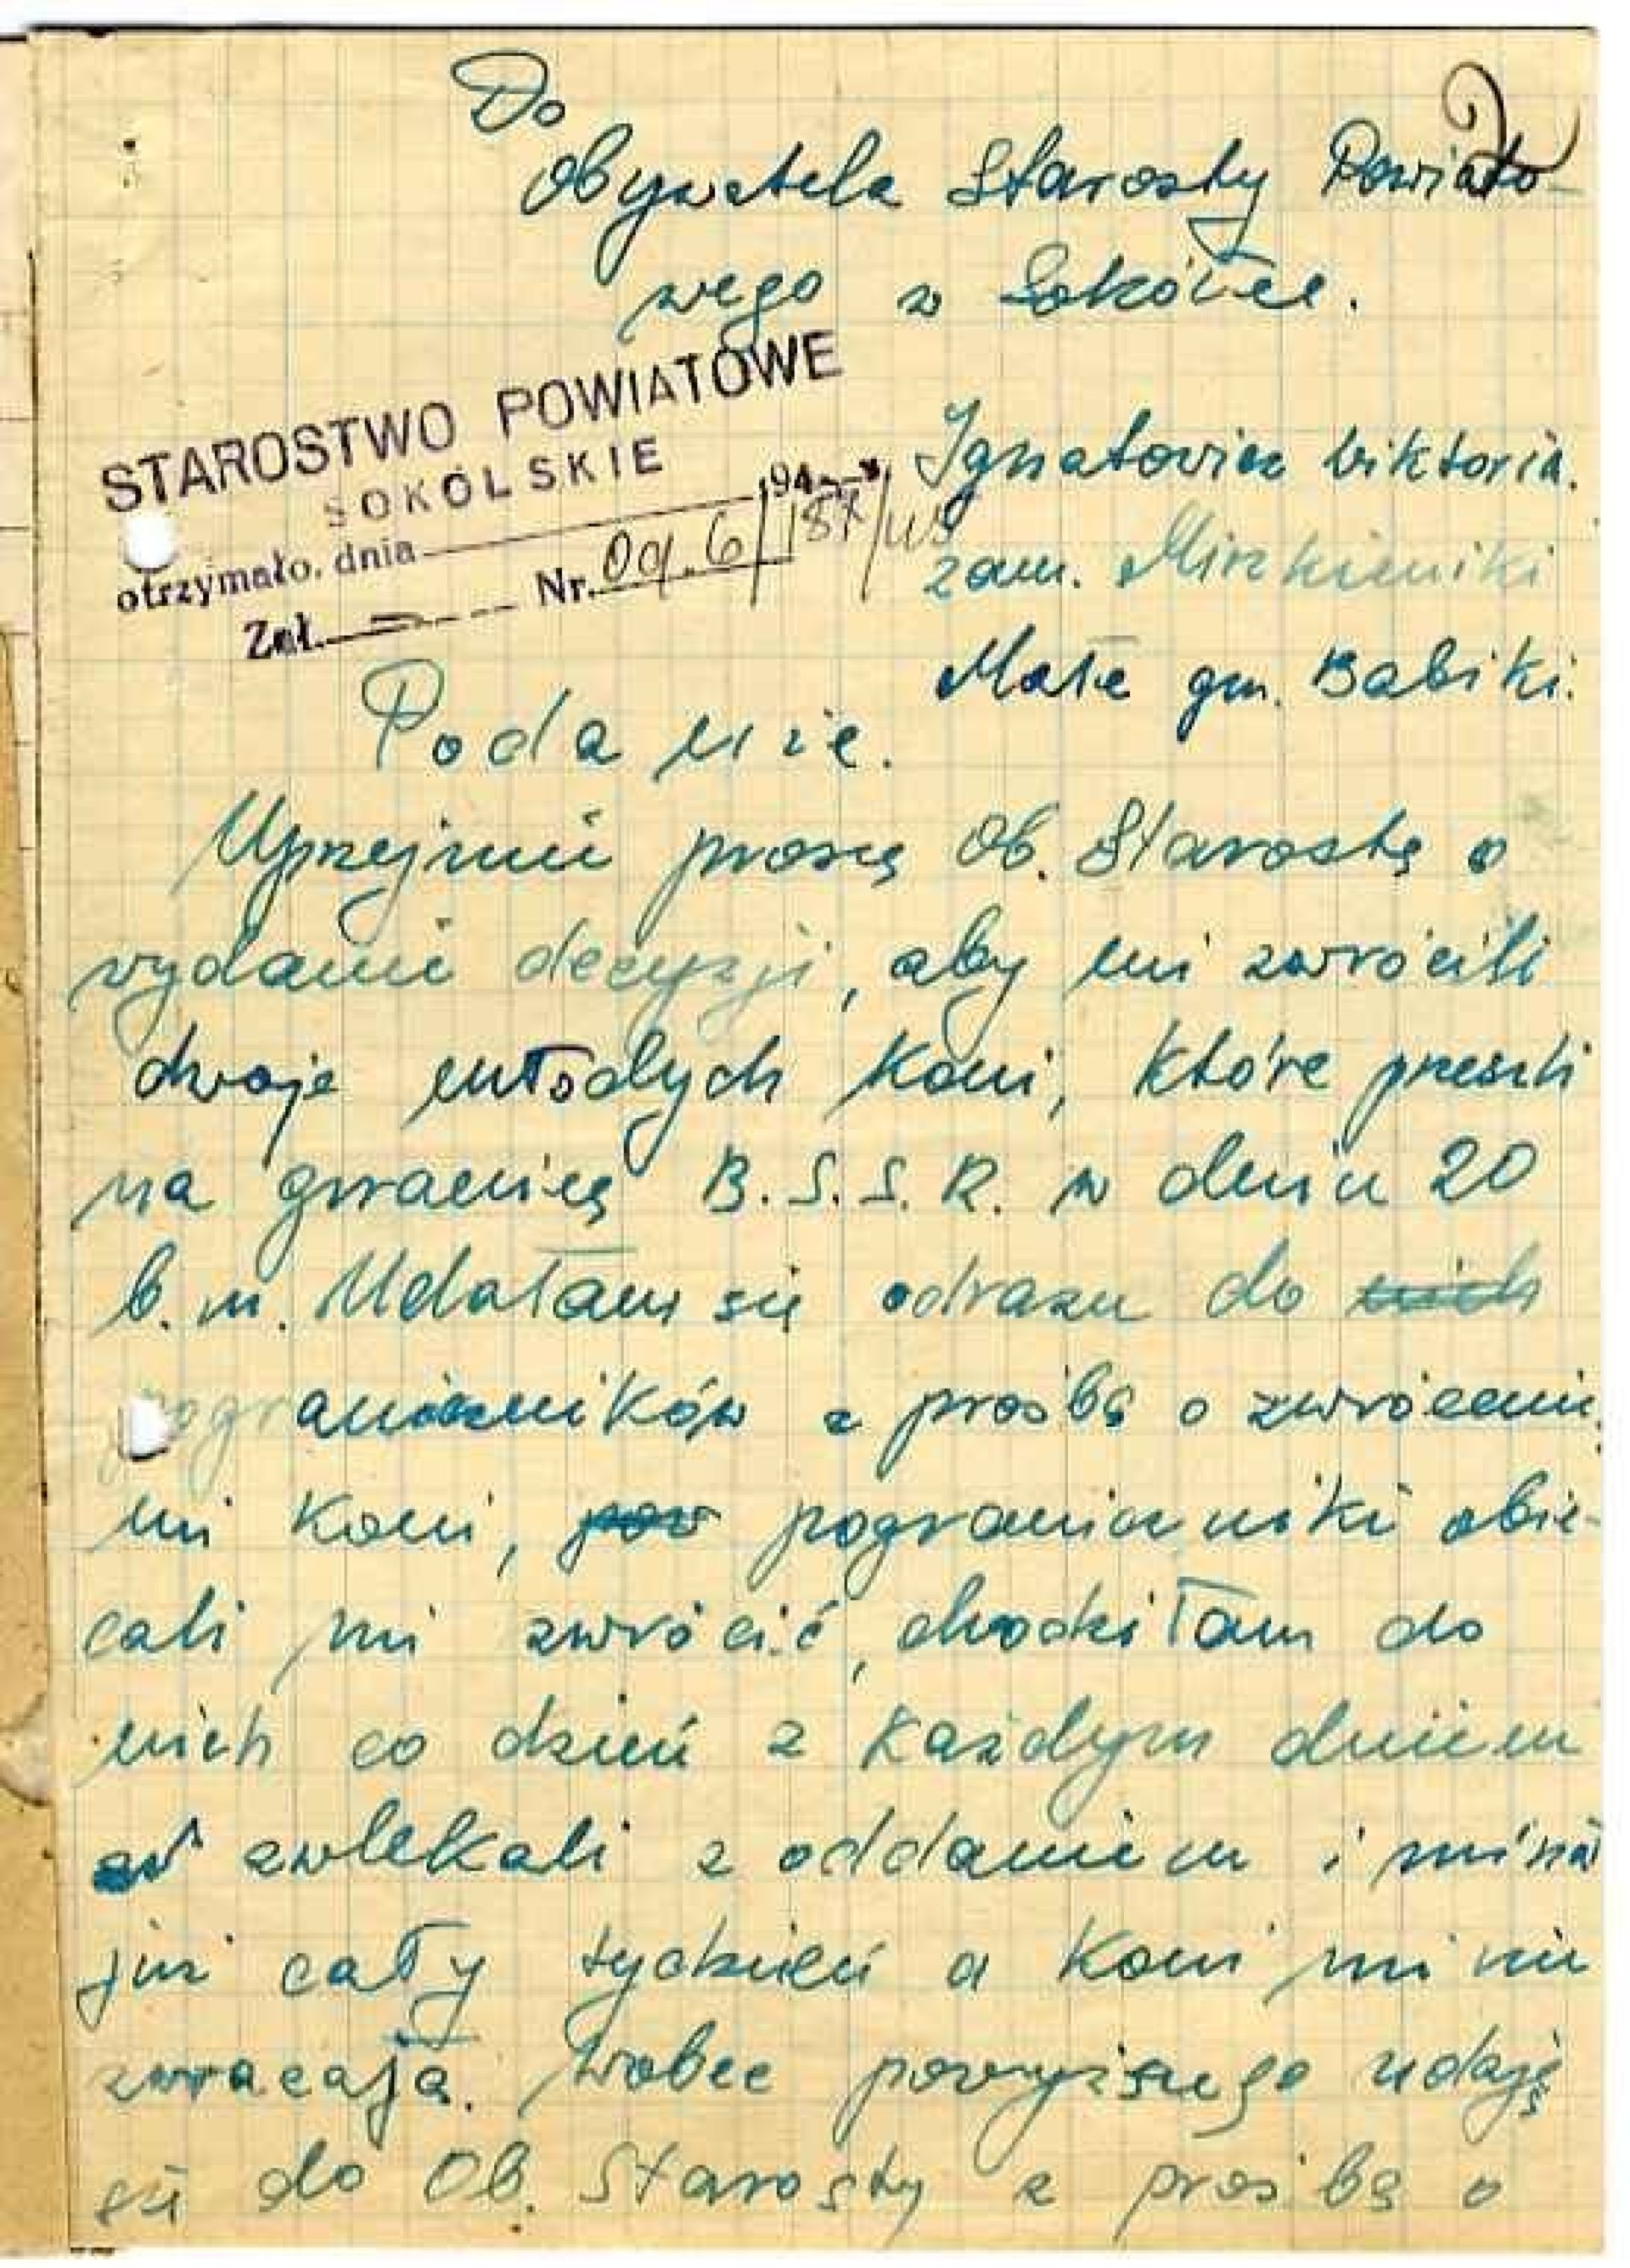 2
Do
Obywatela Starosty Powiato-
wego w Sokółce.
STAROSTWO POWIATOWE
SOKÓLSKIE
otrzymało, dnia 194
Zał. — Nr. Og. 6/187/
Ignatowicz Wiktoria.
zam. Miszkieniki
Małe gm. Babiki.
Podanie.
Uprzejmie proszę Ob. Starostę o
wydanie decyzji, aby mi zwrócili
dwoje młodych koni, które przeszli
na granicę B.S.S.R. w dniu 20
b.m. Udałam się odrazu do nich
pograniczników z prośbą o zwrócenie
mi koni, pow pograniczniki obie-
cali mi zwrócić, chodziłam do
nich co dzień z każdym dniem
zwlekali z oddaniem i minął
już cały tydzień a koni mi nie
zwracają. Wobec powyższego udaję
się do Ob. Starosty z prośbą o